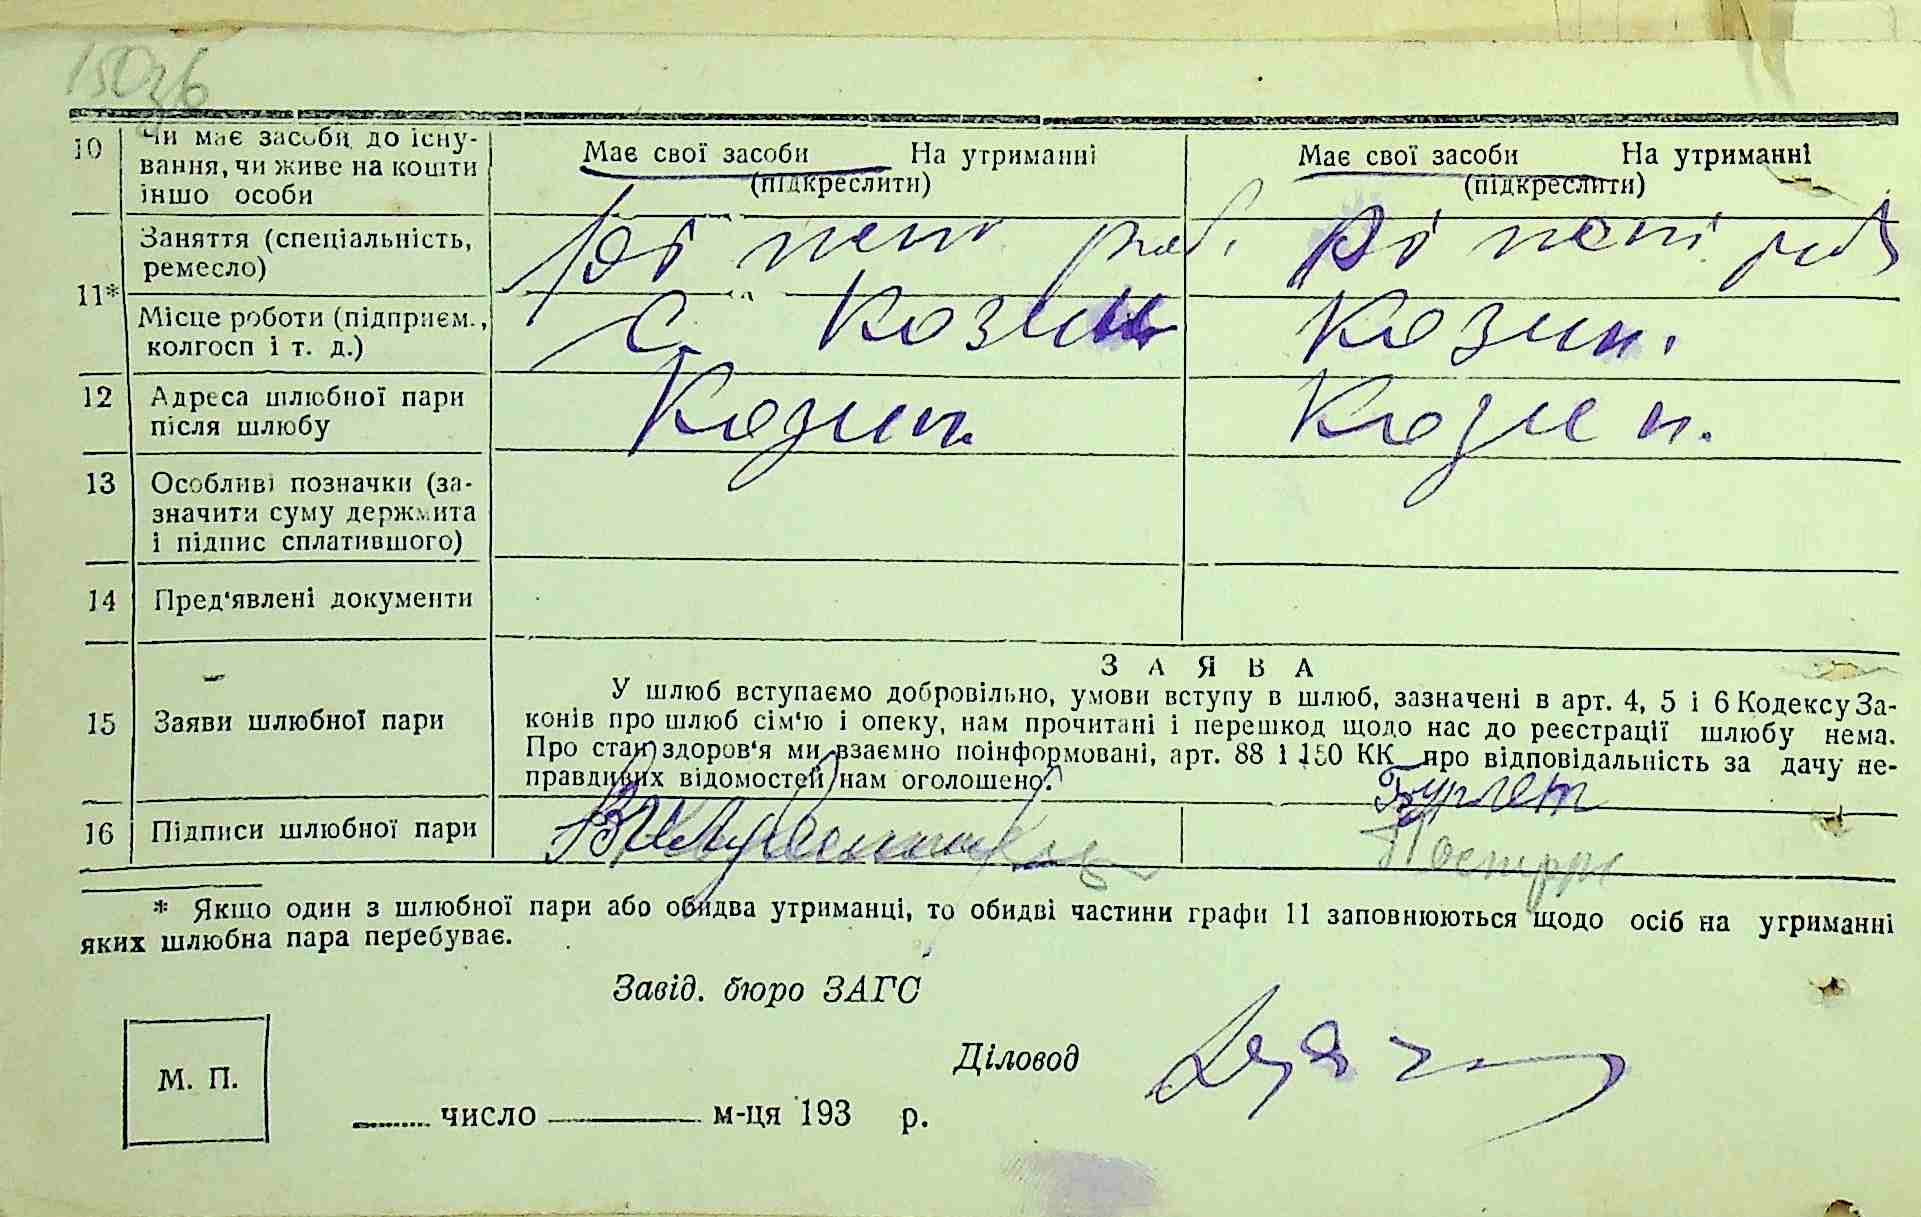 150зв
10 Чи має засоби до існу-
вання, чи живе на кошти
іншо особи
Має свої засоби На утриманні
(підкреслити)
Має свої засоби На утриманні
(підкреслити)
11* Заняття (спеціальність,
ремесло)
Місце роботи (підприєм.,
колгосп і т. д.)
с. Козин
Козин.
12 Адреса шлюбної пари
після шлюбу
Козин.
Козин.
13 Особливі позначки (за-
значити суму держмита
і підпис сплатившого)
14 Пред'явлені документи
15 Заяви шлюбної пари
ЗАЯВА
У шлюб вступаємо добровільно, умови вступу в шлюб, зазначені в арт. 4, 5 і 6 Кодексу За-
конів про шлюб сім'ю і опеку, нам прочитані і перешкод щодо нас до реєстрації шлюбу нема.
Про стан здоров'я ми взаємно поінформовані, арт. 88 і 150 КК про відповідальність за дачу не-
правдивих відомостей нам оголошено.
16 Підписи шлюбної пари
* Якщо один з шлюбної пари або обидва утриманці, то обидві частини графи 11 заповнюються щодо осіб на утриманні
яких шлюбна пара перебуває.
Завід. бюро ЗАГС
Діловод
М. П.
число м-ця 193 р.